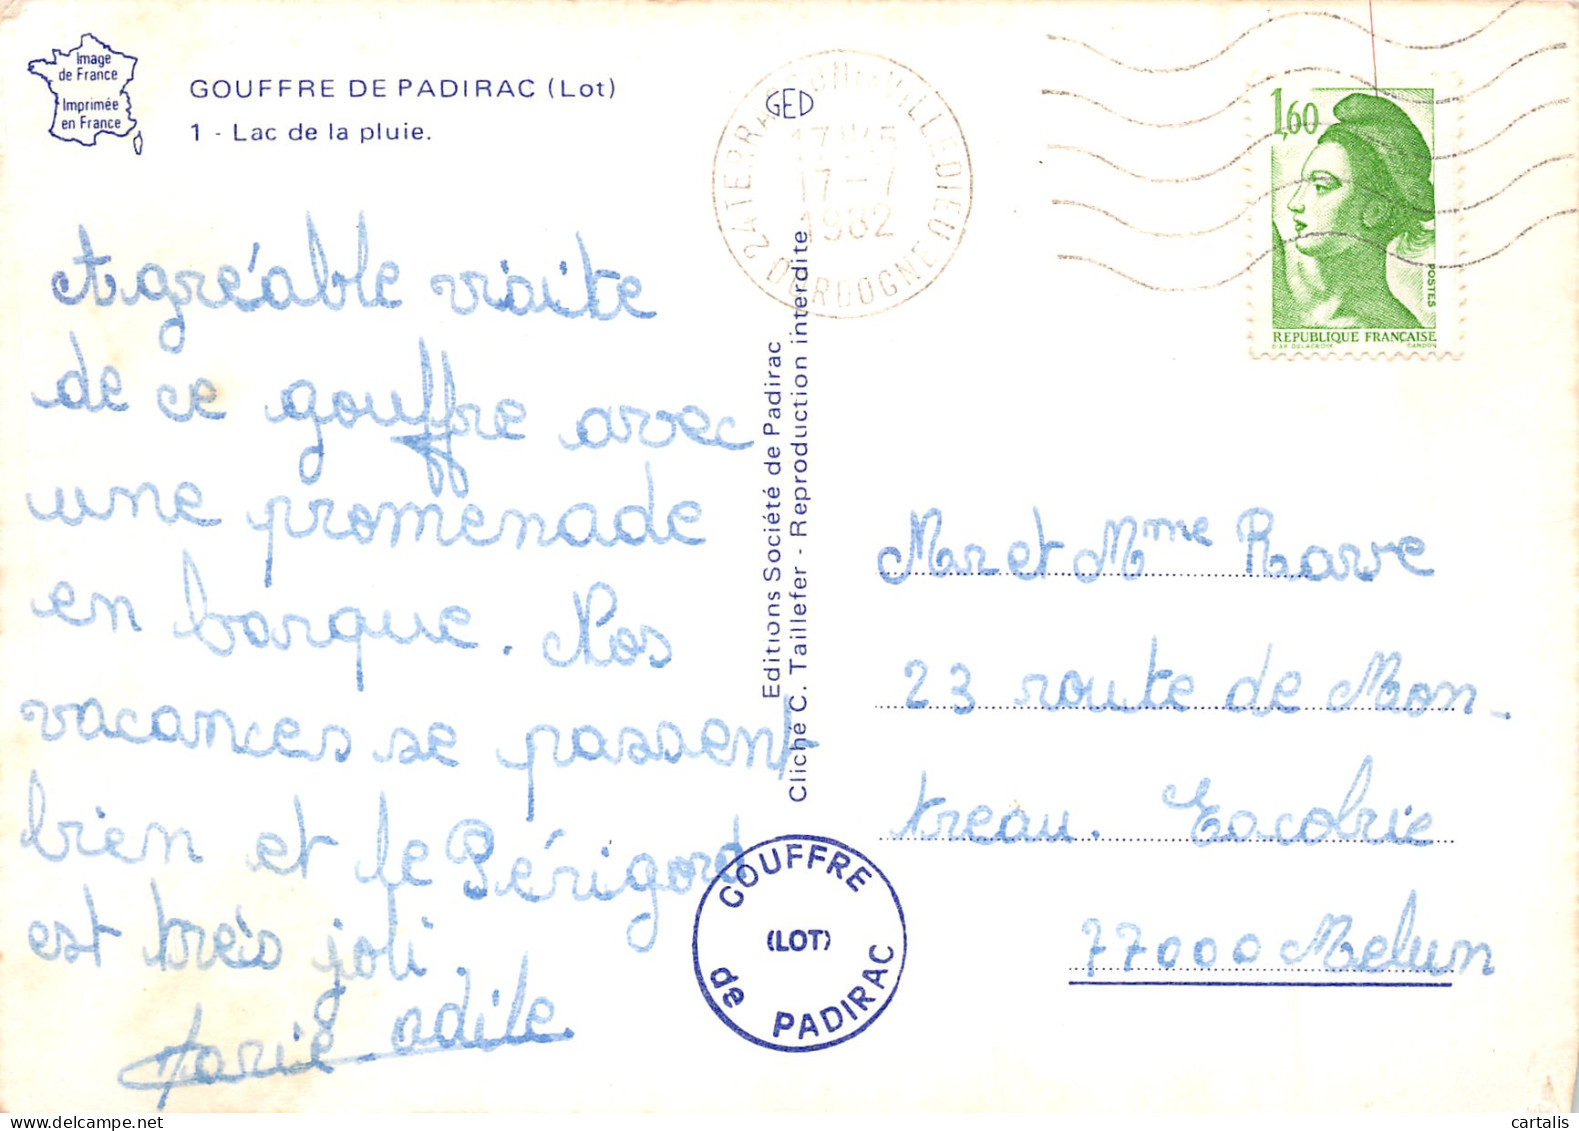 Image
de France
Imprimée
en France
GOUFFRE DE PADIRAC (Lot)
1 - Lac de la pluie.
GED
17-7
1982
24 DORDOGNE
1,60
POSTES
REPUBLIQUE FRANÇAISE
Agréable visite
de ce gouffre avec
une promenade
en barque. Nos
vacances se passent
bien et le Périgord
est très joli.
Marie Odile
Editions Société de Padirac
Cliché C. Taillefer - Reproduction interdite
GOUFFRE
(LOT)
de PADIRAC
Mr et Mme Rave
23 route de Mon-
treau. Escobrie
77000 Melun
cartalis